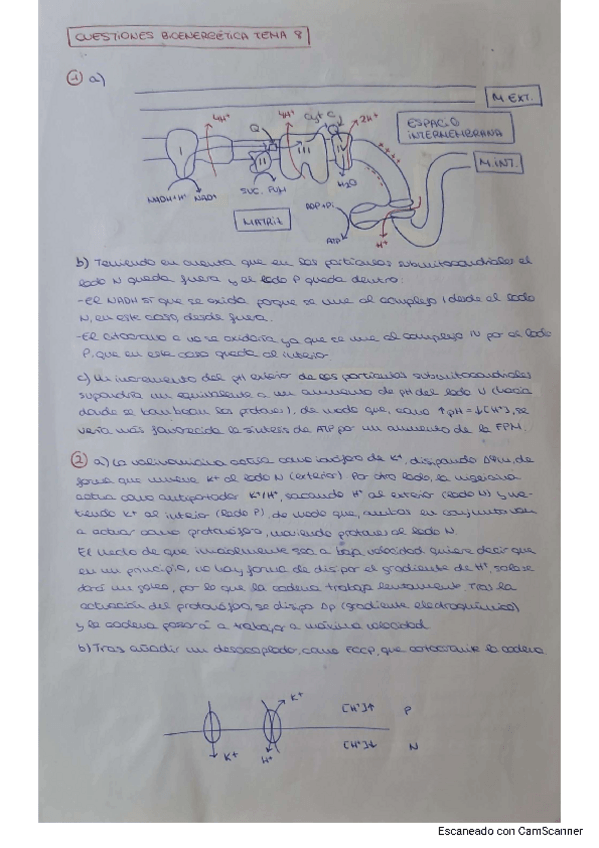 CUESTIONES BIOENERGÉTICA TEMA 8
1 a)
M.EXT.
4H+ 4H+ Cyt c 2H+
Q
ESPACIO
INTERMEMBRANA
I II III IV
M.INT.
NADH+H+ NAD+ SUC. FUM H2O
ADP+Pi
MATRIZ
ATP H+
b) Teniendo en cuenta que en las partículas submitocondriales el
lado N queda fuera y el lado P queda dentro:
-El NADH SÍ que se oxida, porque se une al complejo I desde el lado
N, en este caso, desde fuera.
-El citocromo c no se oxidaría ya que se une al complejo IV por el lado
P, que en este caso queda al interior
c) Un incremento del pH exterior de las partículas submitocondriales
supondría un equivalente a un aumento de pH del lado N (hacia
donde se bombean los protones), de modo que, como ↑pH = ↓[H+], se
vería más favorecida la síntesis de ATP por un aumento de la FPM.
2 a) La valinomicina actúa como ionóforo de K+, disipando ΔΨm, de
forma que mueve K+ al lado N (exterior). Por otro lado, la nigericina
actúa como antiportador K+/H+, sacando H+ al exterior (lado N) y me-
tiendo K+ al interior (lado P), de modo que, ambas en conjunto van
a actuar como protonóforo, moviendo protones al lado N.
El hecho de que inicialmente sea a baja velocidad quiere decir que
en un principio, no hay forma de disipar el gradiente de H+, solo se
dará un goteo, por lo que la cadena trabaja lentamente. Tras la
actuación del protonóforo, se disipa Δp (gradiente electroquímico)
y la cadena pasará a trabajar a máxima velocidad.
b) Tras añadir un desacoplador, como FCCP, que la cadena
K+ [H+]↑ P
K+ H+ [H+]↓ N
Escaneado con CamScanner